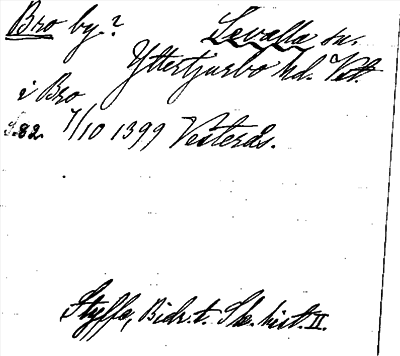 Bro by? Sevalla sn.
Yttertjurbo hd. Vstl.
i Bro
S.82. 7/10 1399 Vesterås.
Styffe, Bidr. t. Sk. hist. II.